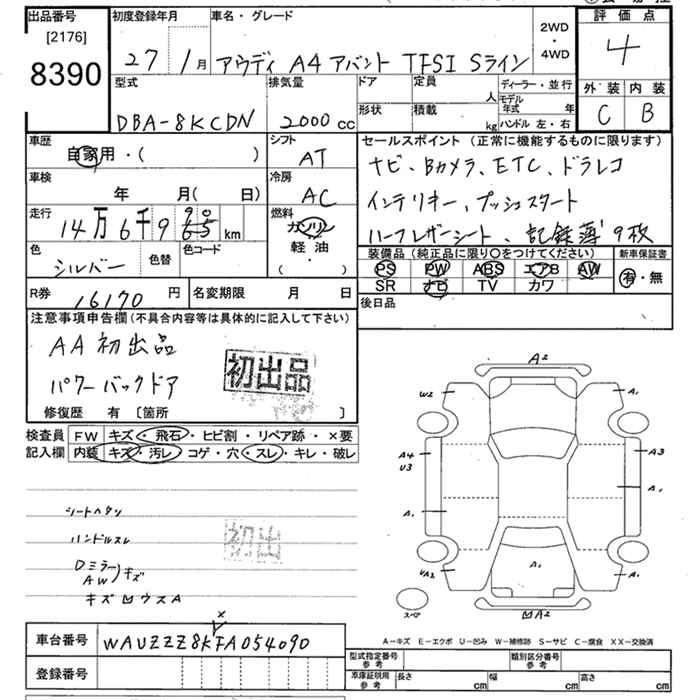 出品番号 初度登録年月 車名・グレード 評価点
[2176]
8390
27 1月 アウディ A4 アバント TFSI Sライン 2WD・4WD 4
型式 排気量 ドア 定員 人 ディーラー・並行 外装 内装
DBA-8KCDN 2000 cc 形状 積載 kg モデル年式 年 ハンドル 左・右 C B
車歴 シフト セールスポイント (正常に機能するものに限ります)
自家用・( ) AT ナビ、Bカメラ、ETC、ドラレコ
車検 冷房
年 月( 日) AC インテリキー、プッシュスタート
走行 燃料
14万6千9 km ガソリン ハーフレザーシート、記録簿 9枚
色 色替 色コード 軽・油 装備品(純正品に限り○をつけてください) 新車保証書
シルバー ・( ) PS PW ABS エアB AW 有・無
SR ナビ TV カワ
R券 16170 円 名変期限 月 日 後日品
注意事項申告欄(不具合内容等は具体的に記入して下さい)
AA初出品
パワーバックドア
初出品
修復歴 有 [箇所 ]
検査員 FW キズ・飛石・ヒビ割・リペア跡・×要
記入欄 内装 キズ・汚レ・コゲ・穴・スレ・キレ・破レ
A2
W2 A1
A4 A3
U3
A1 A1
A1
UA2 A1
スペア
A2
シートヘタリ
ハンドルスレ
初出
Dミラー
AW キズ
A-キズ E-エクボ U-凹み W-補修跡 S-サビ C-腐食 XX-交換済
×
車台番号 WAUZZZ8KFA054090
型式指定番号 参考 類別区分番号 参考
登録番号 車庫証明用 参考 長さ cm 幅 cm 高さ cm